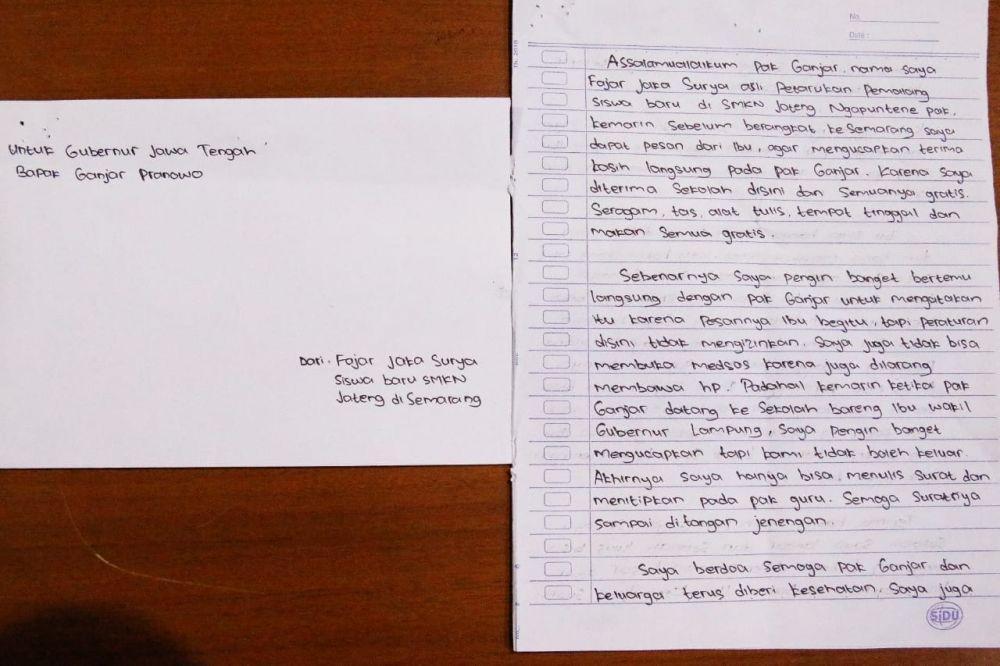 Untuk Gubernur Jawa Tengah
Bapak Ganjar Pranowo
Dari. Fajar Jaka Surya
Siswa baru SMKN
Jateng di Semarang
No.
Date :
Assalamualaikum pak Ganjar. nama saya
Fajar Jaka Surya asli Petarukan Pemalang
siswa baru di SMKN Jateng Ngapuntene pak.
kemarin sebelum berangkat ke Semarang saya
dapat pesan dari Ibu, agar mengucapkan terima
kasih langsung pada pak Ganjar. Karena saya
diterima Sekolah disini dan Semuanya gratis.
Seragam, tas, alat tulis, tempat tinggal dan
makan Semua gratis.
Sebenarnya Saya pengin banget bertemu
langsung dengan pak Ganjar untuk mengatakan
itu karena Pesannya Ibu begitu, tapi peraturan
disini tidak mengizinkan. Saya juga tidak bisa
membuka medsos karena juga dilarang
membawa hp. Padahal kemarin ketika pak
Ganjar datang ke Sekolah bareng Ibu wakil
Gubernur Lampung, Saya Pengin banget
mengucapkan tapi kami tidak boleh keluar.
Akhirnya saya hanya bisa menulis surat dan
menitipkan pada pak guru. Semoga Suratnya
sampai di tangan jenengan.
Saya berdoa Semoga pak Ganjar dan
keluarga terus diberi kesehatan. Saya juga
SiDU